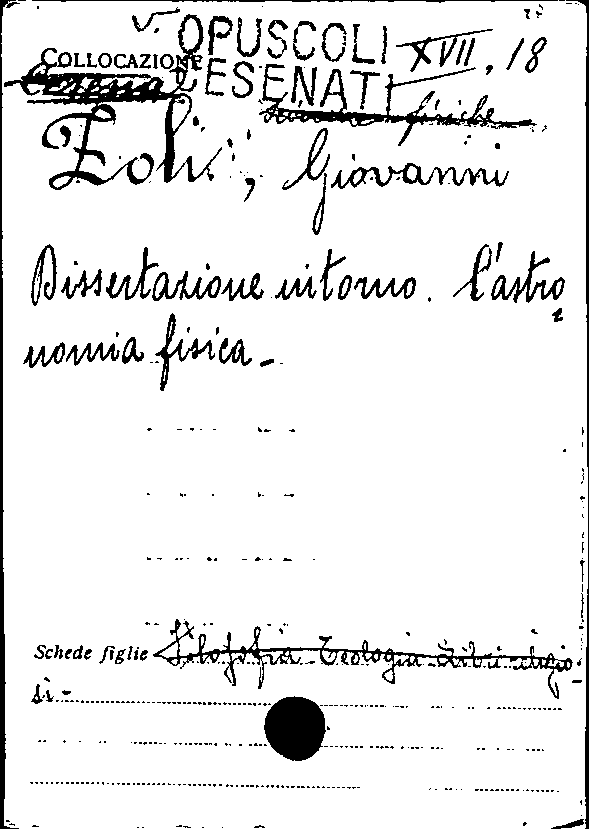 V. OPUSCOLI XVII, 18
COLLOCAZIONE CESENATI
Cesena
Scienze fisiche
Zoli, Giovanni
Dissertazione intorno l'astro
nomia fisica -
Schede figlie Filosofia Teologia Libri religio-
si -